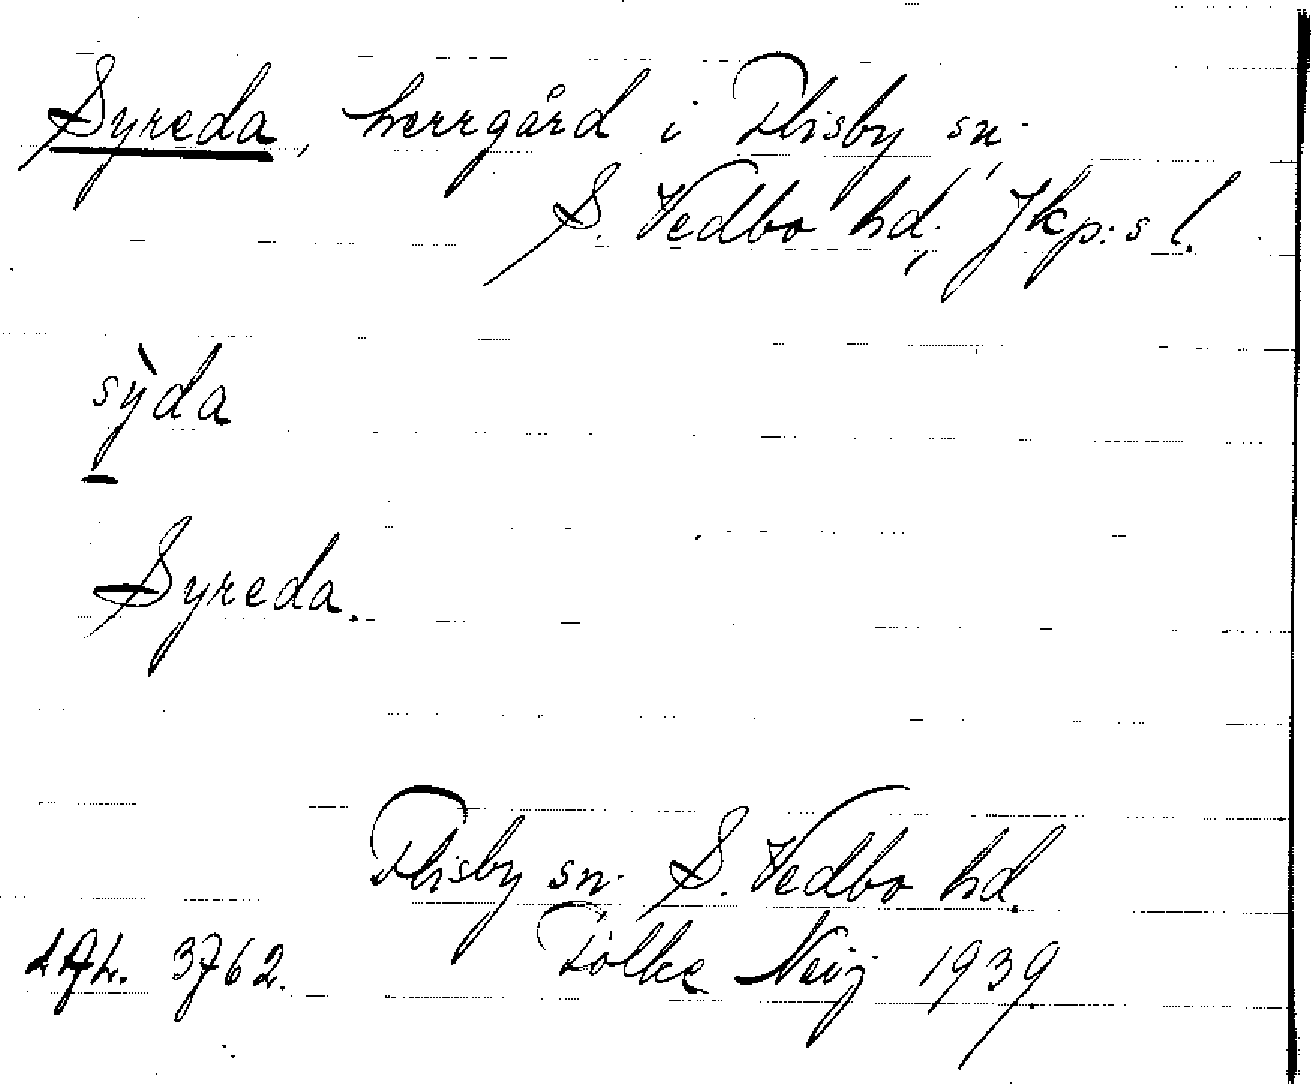 Syreda, herrgård i Flisby sn,
S. Vedbo hd, Jkp:s l.
sỳda
Syreda.
Flisby sn. S. Vedbo hd.
3762. Folke Neij 1939